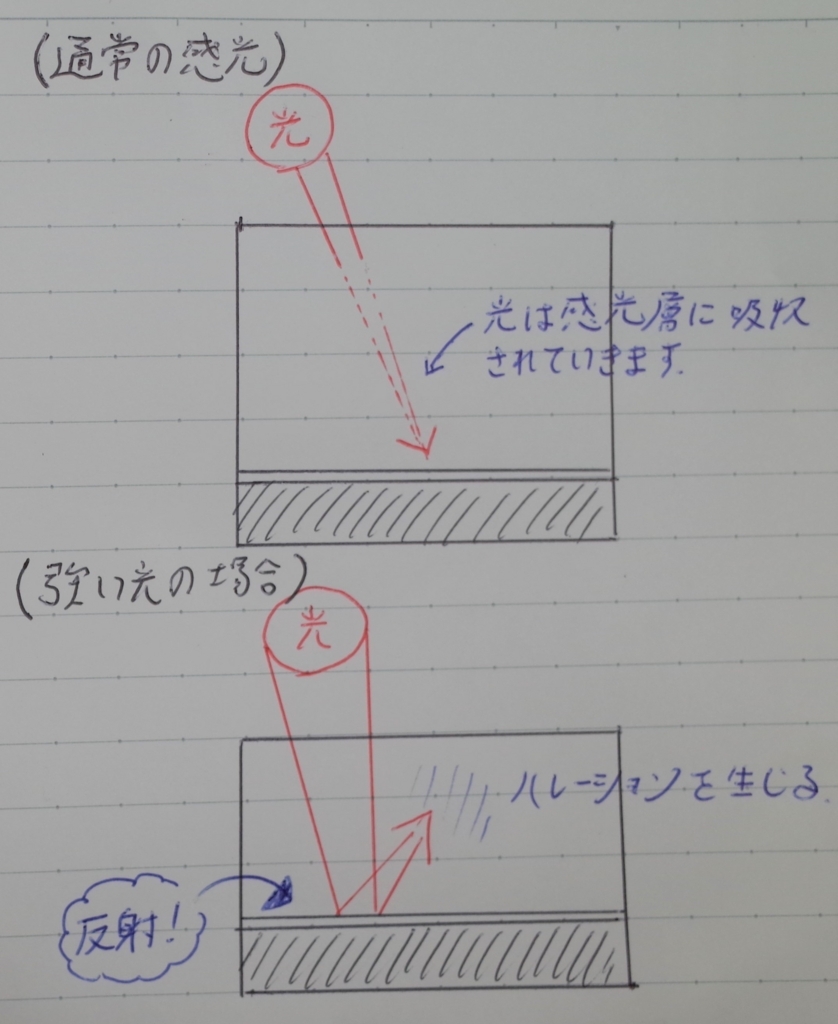 (通常の感光)
光
光は感光層に吸収
されていきます.
(強い光の場合)
光
ハレーションを生じる.
反射!